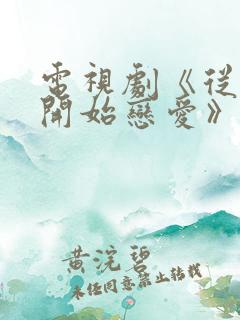 電視劇《從
開始戀愛》
黄浣碧
未任同意禁止转载